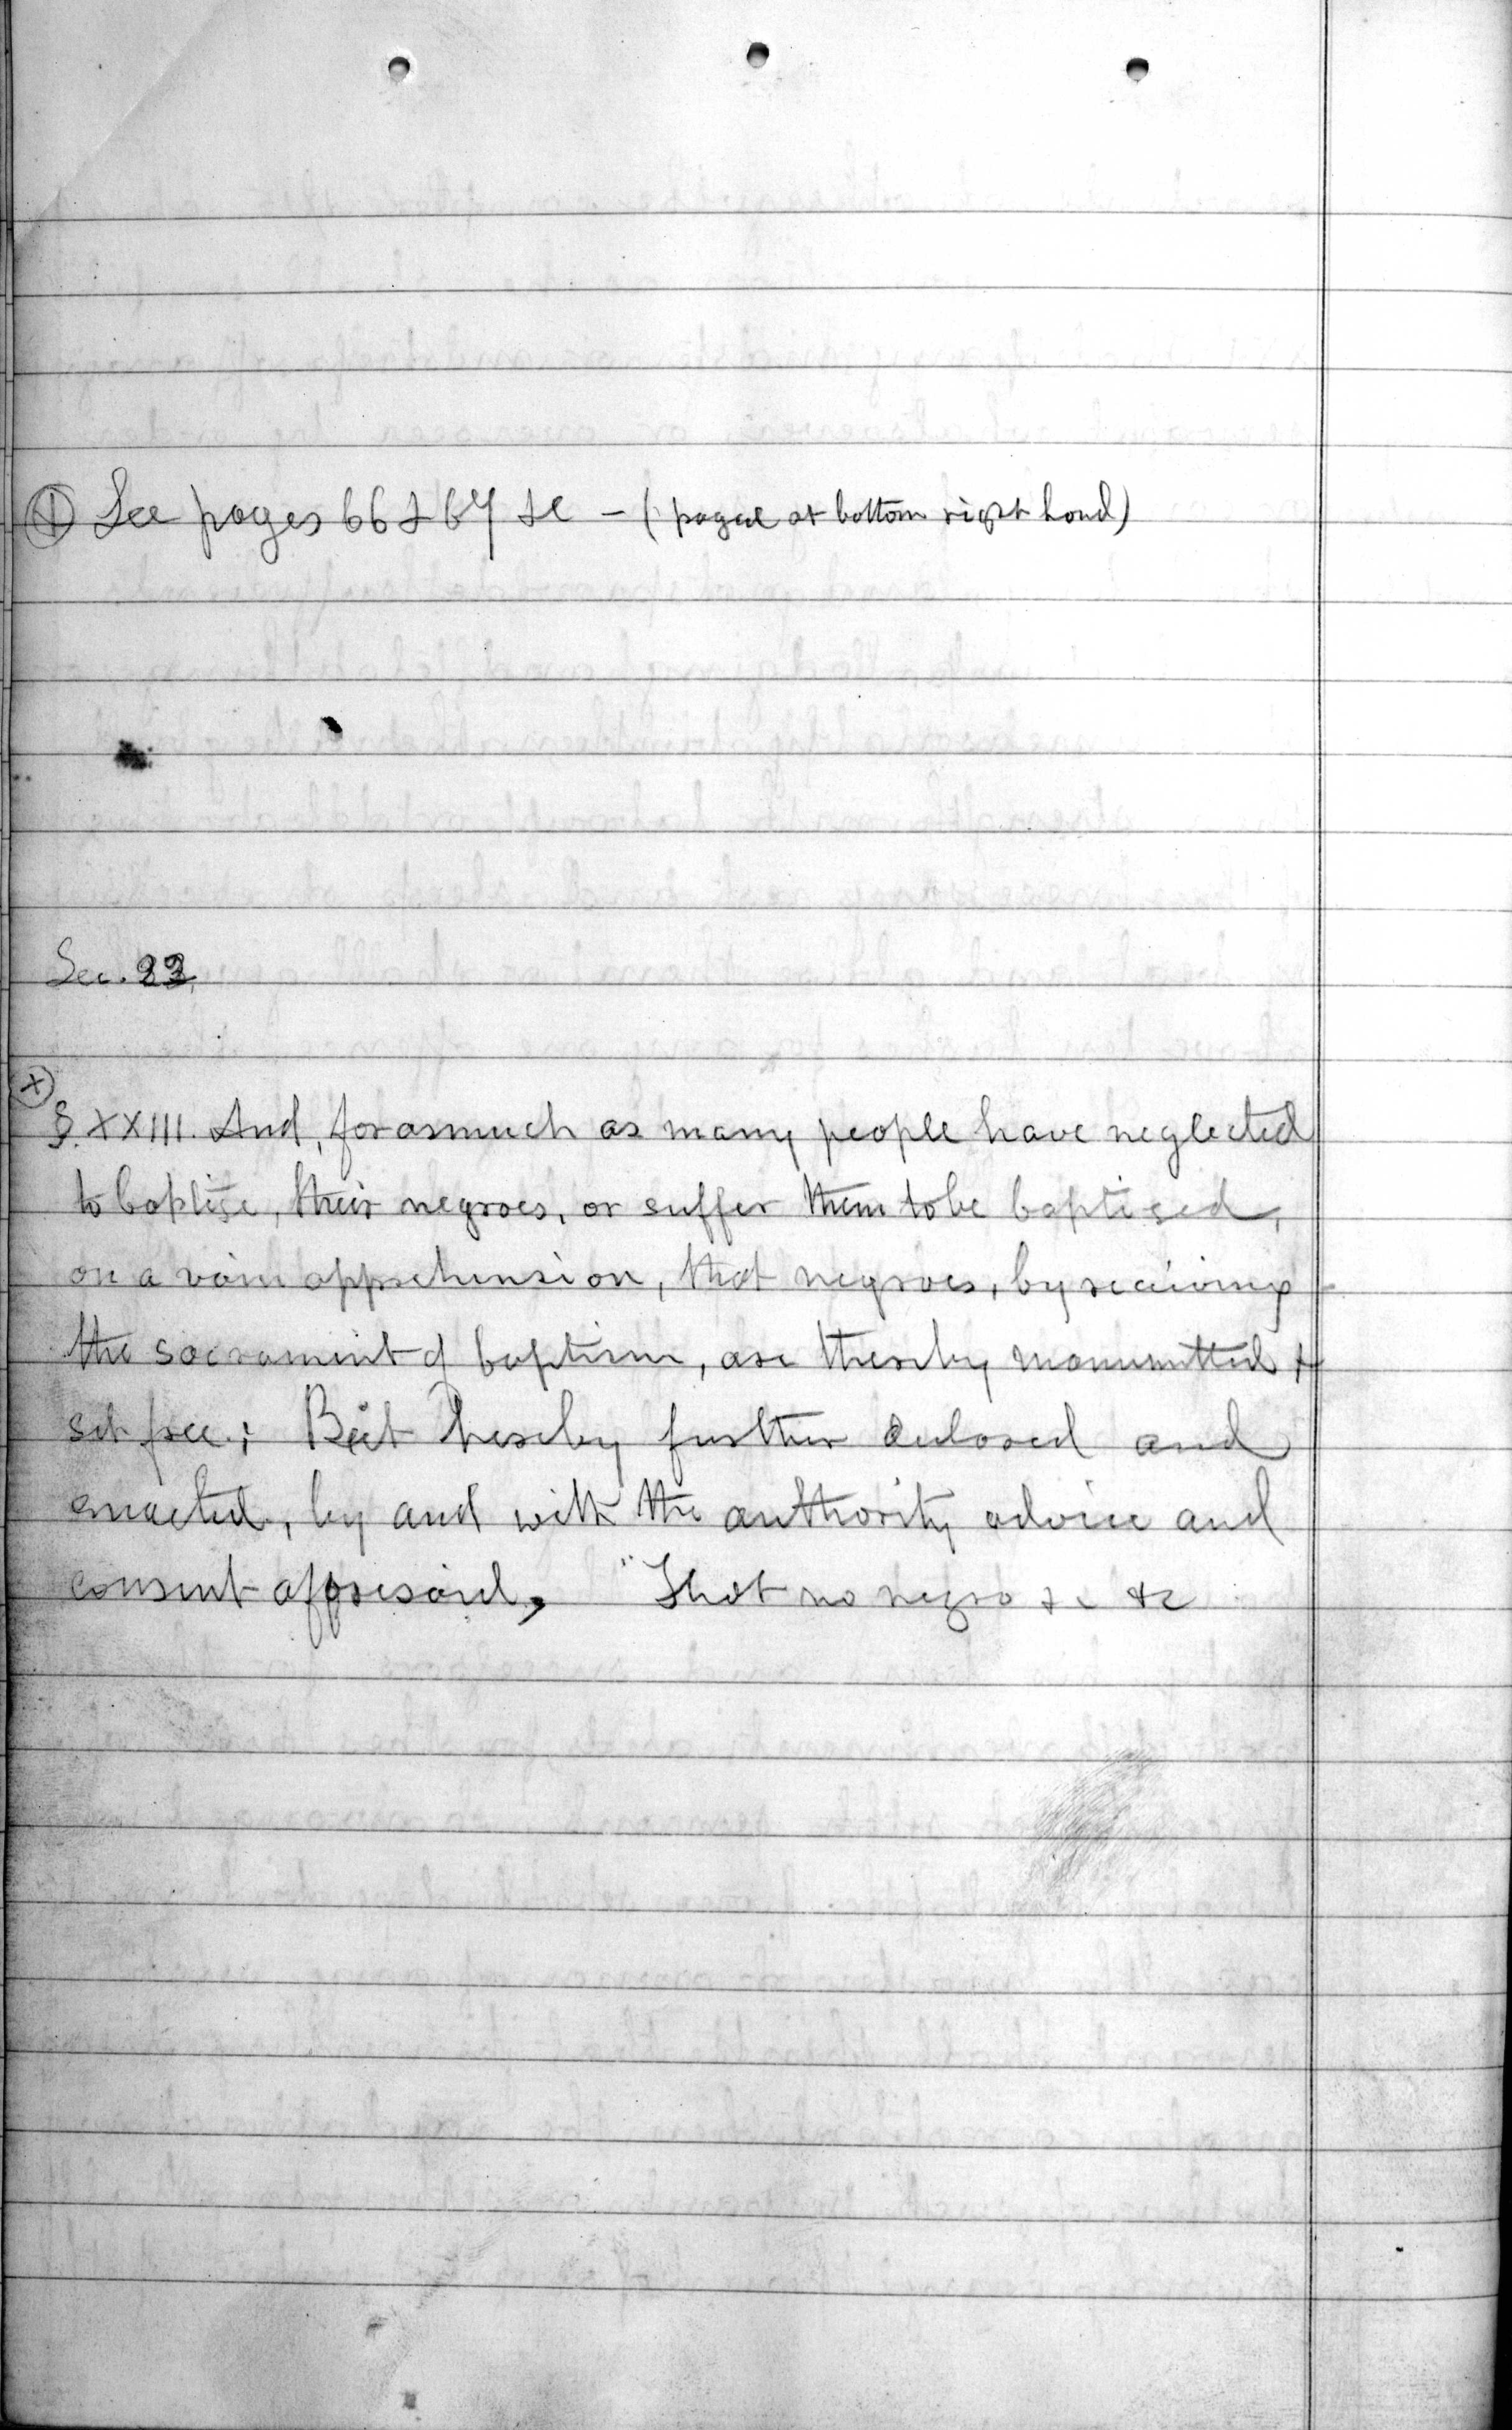 ① See pages 66 & 67 &c - (paged at bottom right hand)
Sec. 23.
(x)
§. XXIII. And, forasmuch as many people have neglected
to baptize, their negroes, or suffer them to be baptised,
on a vain apprehension, that negroes, by receiving
the sacrament of baptism, are thereby manumitted &
set free; Be it hereby further declared and
enacted, by and with the authority advice and
consent afforesaid, "That no negro &c &c